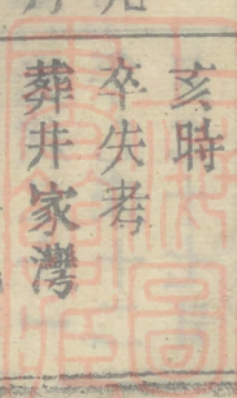 亥時
卒失考
葬井家灣